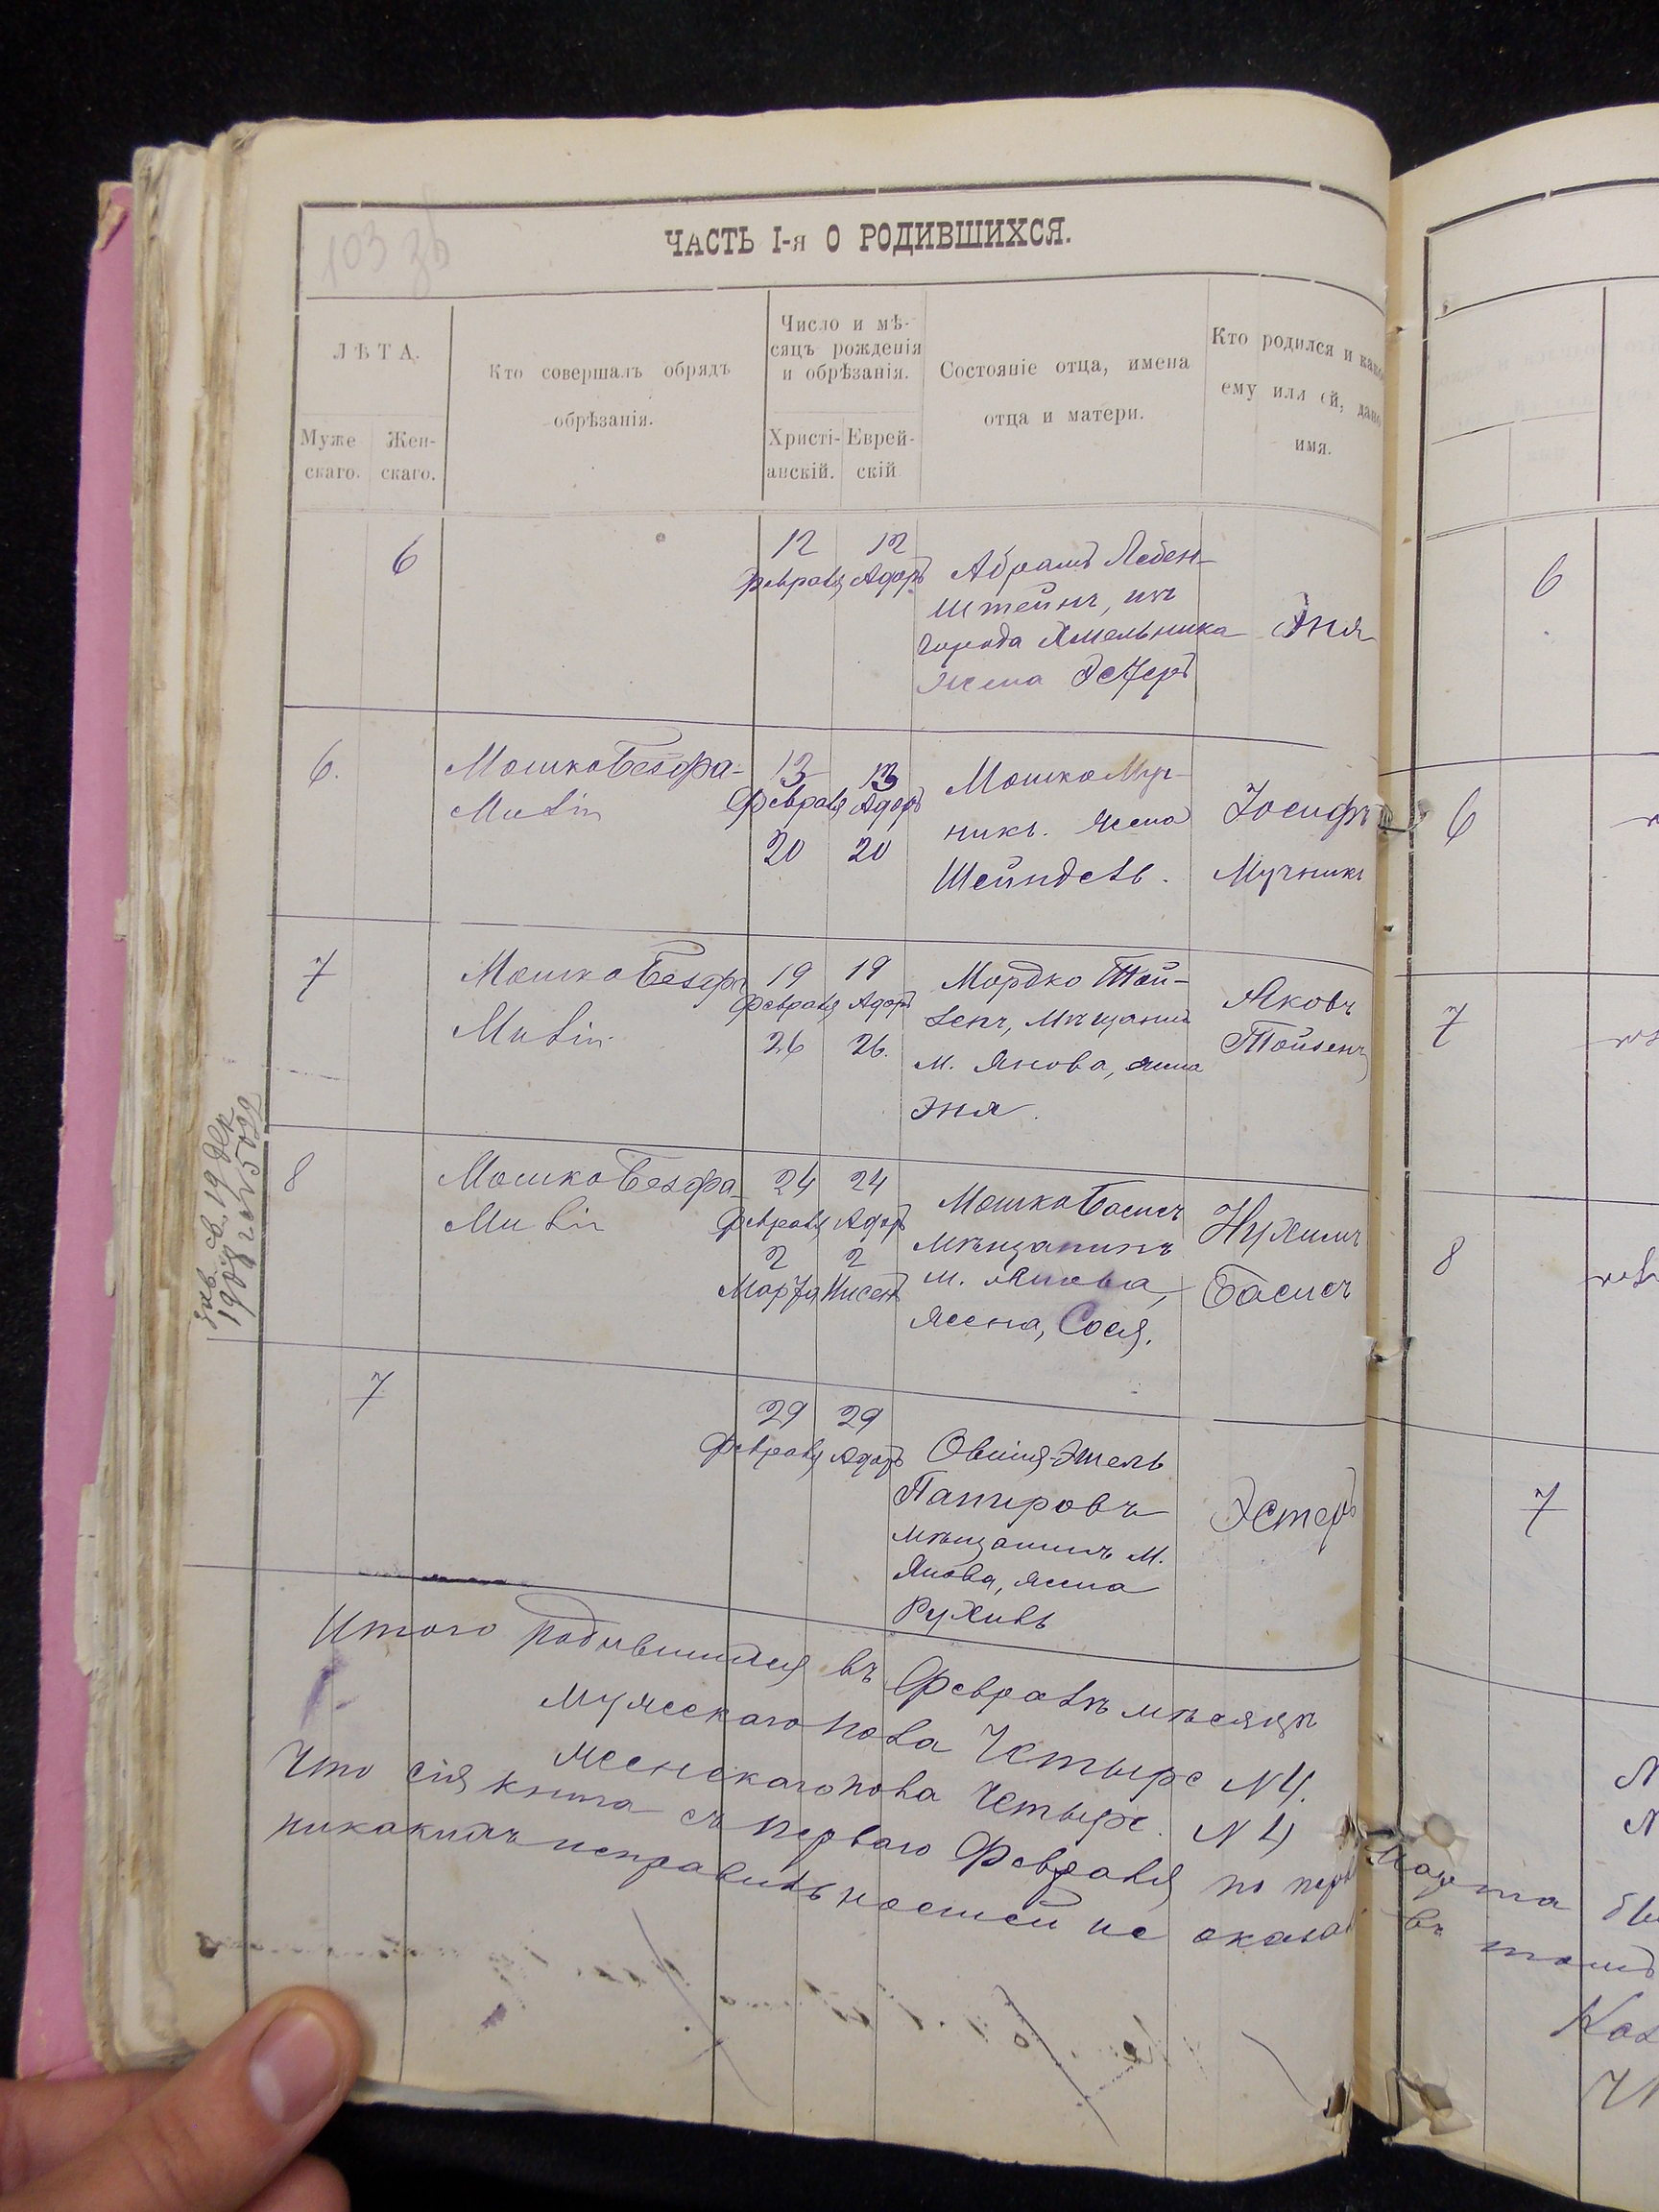 103 зв
ЧАСТЬ I-я О РОДИВШИХСЯ.
ЛѢТА.
Муже
скаго.
Жен-
скаго.
Кто совершалъ обрядъ
обрѣзанія.
Число и мѣ-
сяцъ рожденія
и обрѣзанія.
Христі-
анскій.
Еврей-
скій
Состояніе отца, имена
отца и матери.
Кто родился и како
ему или ей, дано
имя.
6
12
Февраля
12
Адоръ
Абрамъ Лебен-
штейнъ, изъ
города Хмельника
жена Эстеръ
Эня
6.
Мошко Безфа-
милій
13
Февраля
20
13
Адоръ
20
Мошко Муч-
никъ. жена
Шейндель.
Іосифъ
Мучникъ
7
Мошко Безфа
Милій
19
Февраля
26
19
Адоръ
26.
Мордко Той-
зенъ, мѣщанин
м. Янова, жена
Эня.
Яковъ
Тойзенъ
8
Мошко Безфа-
Милій
24
Февраля
2
Марта
24
Адоръ
2
Нисенъ
Мошко Басисъ
мѣщанинъ
м. Янова,
жена, Сося.
Нухимъ
Басисъ
7
29
Февраля
29
Адоръ
Овшія-Эмель
Папировъ
мѣщанинъ м.
Янова, жена
Рухиль
Эстеръ
Итого родившихся въ Февралѣ мѣсяцѣ
Мужескаго пола Четыре N 4.
женскаго пола Четыре. N 4
Что сія книга съ перваго Февраля по перв Марта
никакихъ неправильностей не оказал въ томъ
6
6
7
8
7